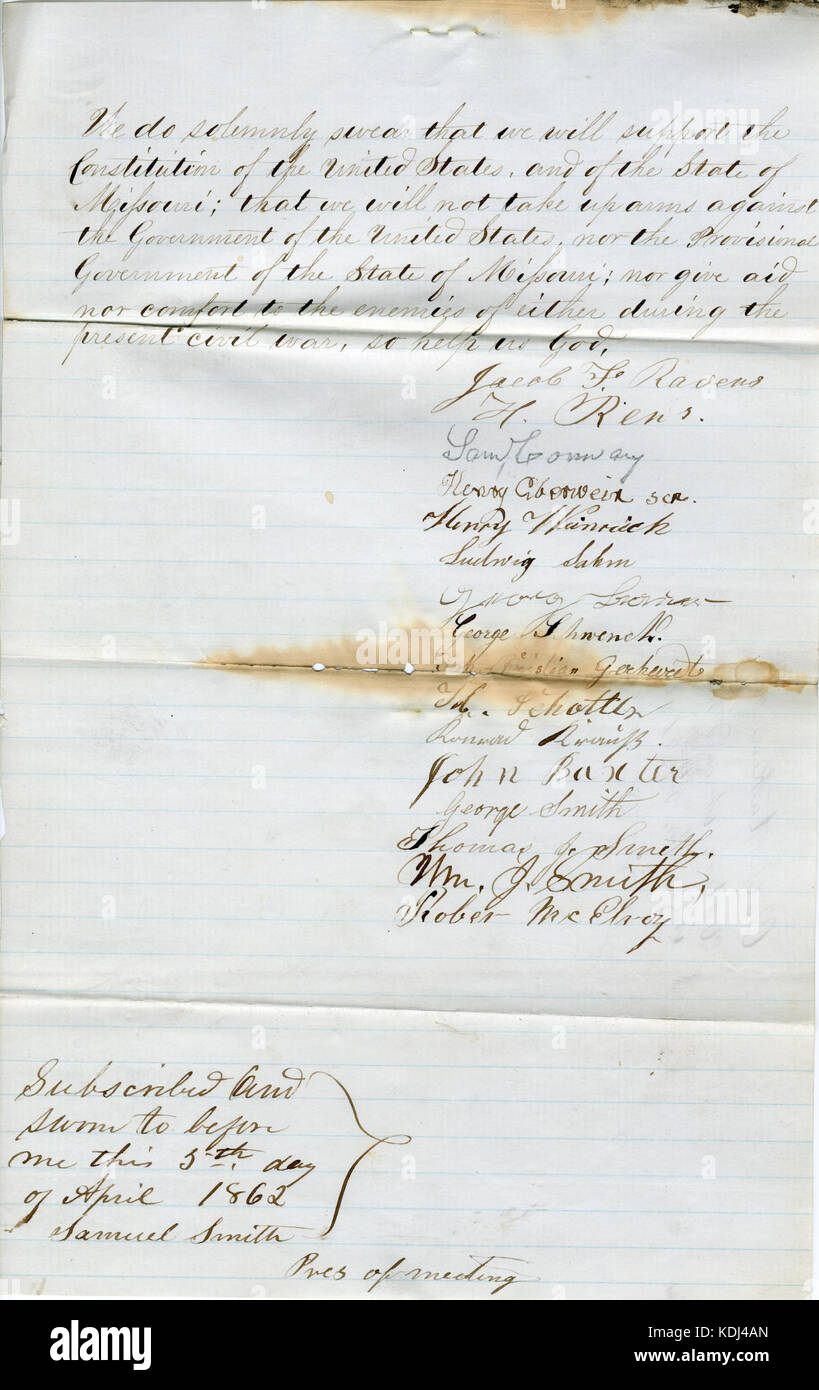 We do solemnly swear that we will support the
Constitution of the United States, and of the State of
Missouri; that we will not take up arms against
the Government of the United States, nor the Provisional
Government of the State of Missouri; nor give aid
nor comfort to the enemies of either during the
present civil war, so help us God,
Jacob F. Ravens
H. Rens.
Saml Conway
Henry Eberwein sen.
Henry Weinrich
Ludwig Sahm
George Schwenck.
Christian
Schotten
Konrad Krauß.
John Baxter
George Smith
Thomas J. Smith.
Wm. J. Smith,
Rober McElroy
Subscribed and
sworn to before
me this 5th day
of April 1862
Samuel Smith
Pres of meeting
alamy
alamy
alamy
alamy
Image ID: KDJ4AN
www.alamy.com